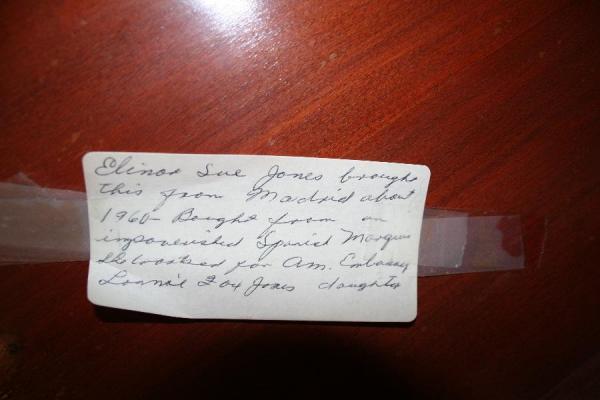 Elinor Sue Jones brought
this from Madrid about
1960 - Bought from an
impoverished Spanish Marquis
She worked for Am. Embassy
Lonnie Fox Jones daughter